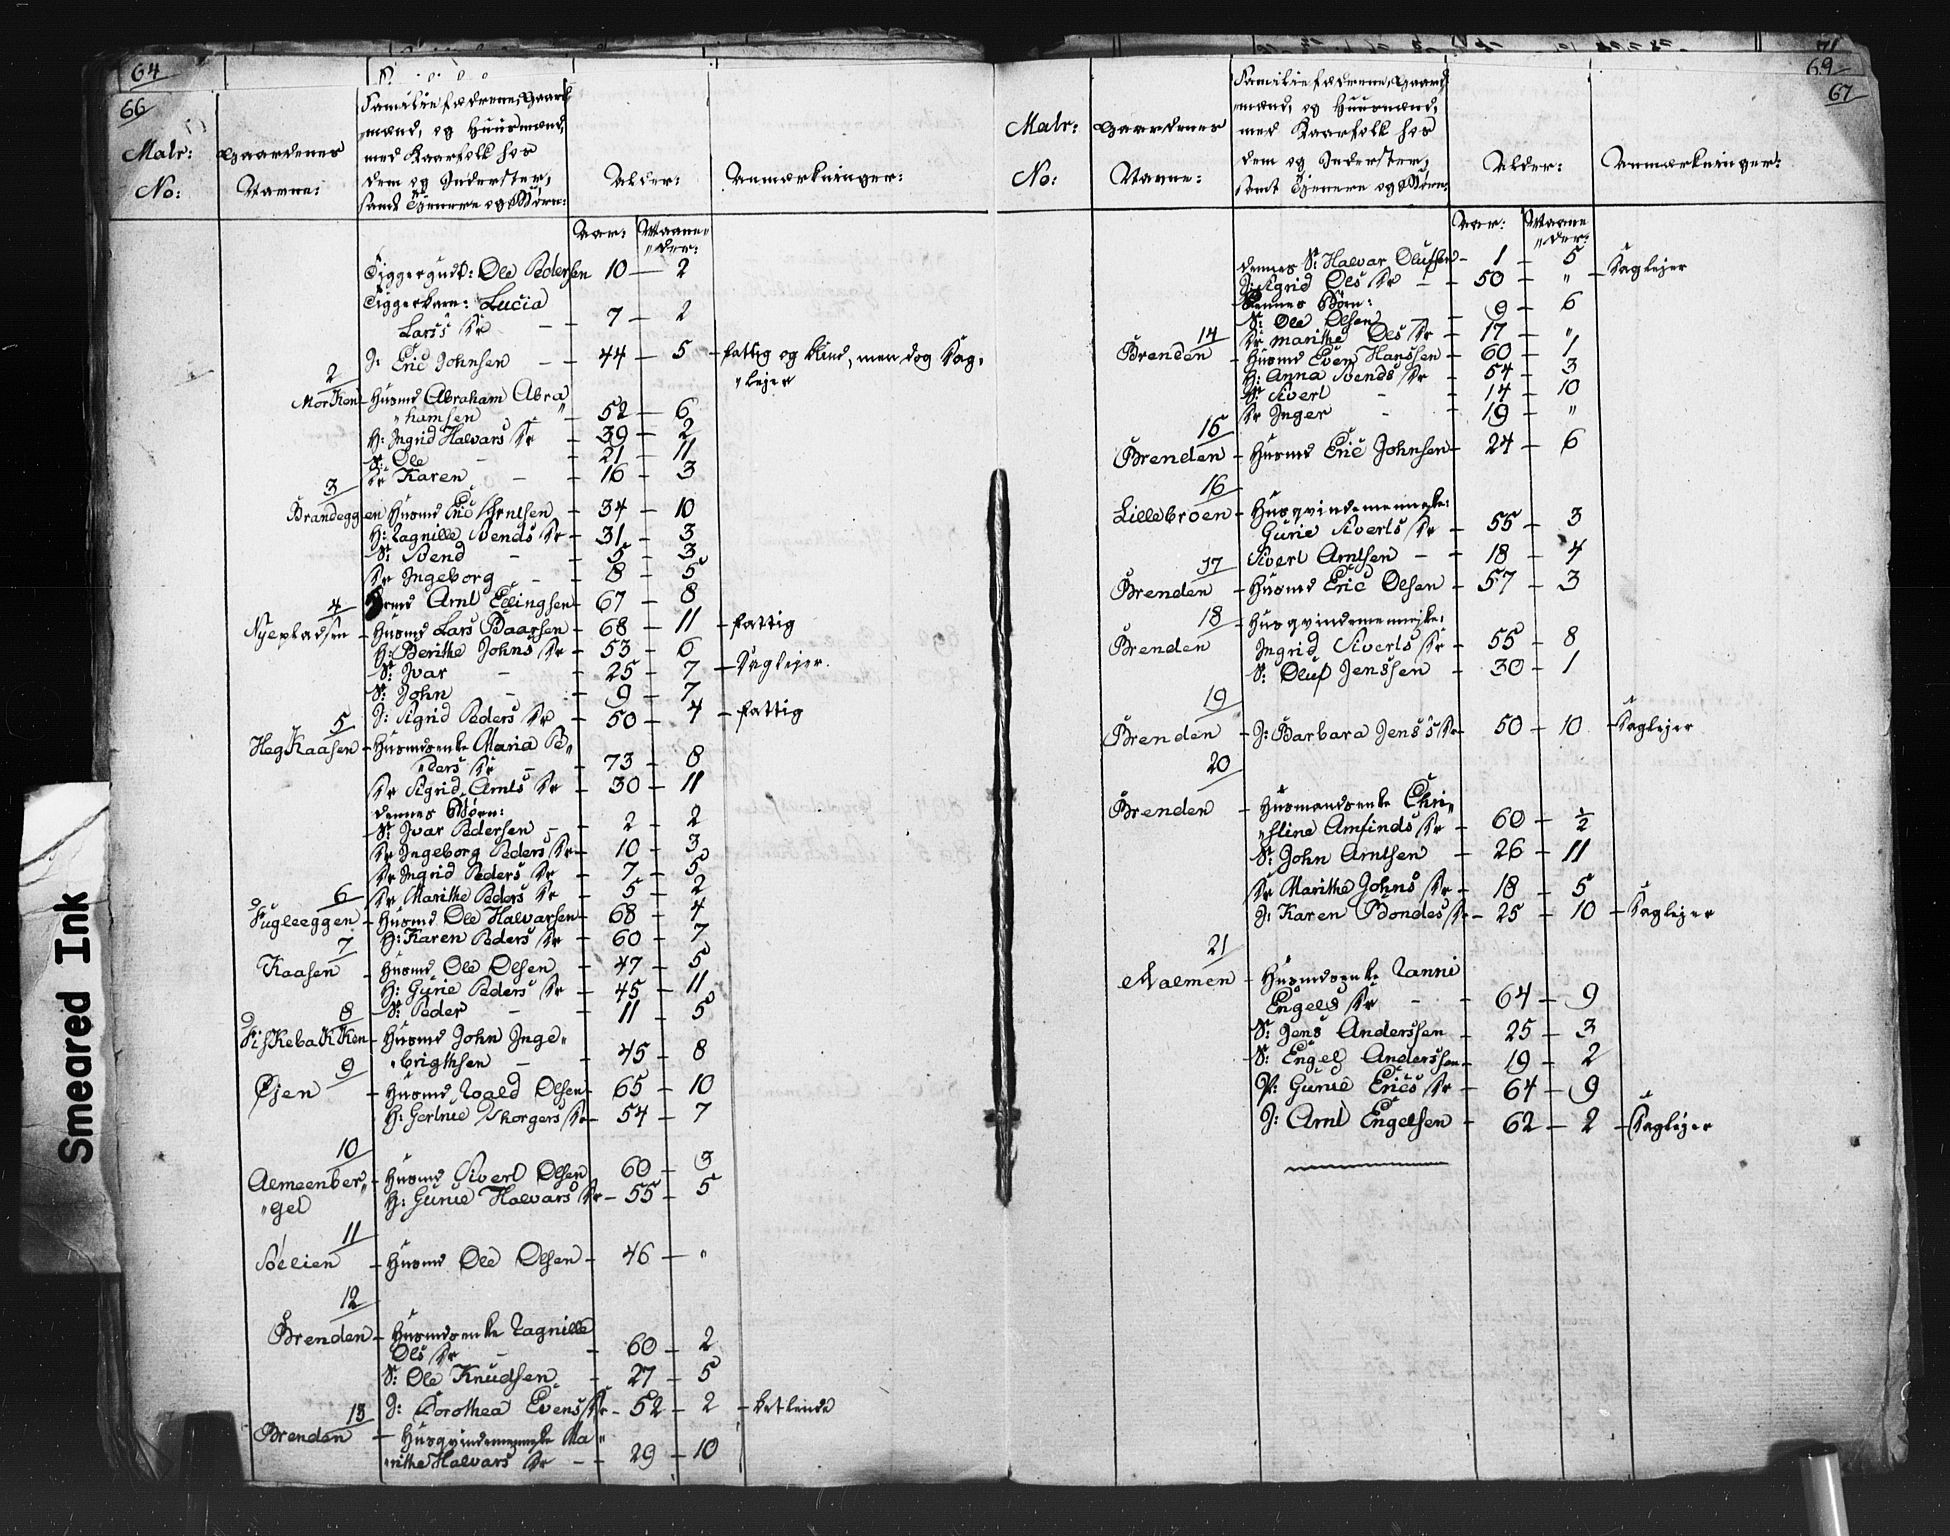 64
66
Matr: No:
Gaardenes Navne:
Familiefædrene, Gaard
mænd, og Huusmænd,
med Kaarfolk hos
dem og Inderster,
samt Tjenere og Børn:
Alder:
Anmærkninger:
Aar: Maane„
„der:
Tiggergudt: Ole Pedersen 10 — 2
Tiggerbarn: Lucia
Larss Dr — 7 — 2
J: Eric Johnsen — 44 — 5 — fattig og blind, men dog Sag„
„lejer
2
Morken — Husmd Abraham Abra„
„hamsen — 52 — 6
H: Ingrid Halvars Dr — 39 — 2
S: Ole — 21 — 11
Dr Karen — 16 — 3
3
Brandeggen Husmd Eric Arntsen — 34 — 10
H: Ragnille Svends Dr — 31 — 3
S: Svend — 5 — 3
Dr Ingeborg — 8 — 5
4
Arnt Ellingsen — 67 — 8
Nyepladsen — Husmd Lars Baarsen — 68 — 11 — fattig
H: Berithe Johns Dr — 53 — 6
S: Ivar — 25 — 7 — Saglejer.
S: John — 9 — 7
J: Sigrid Peders Dr — 50 — 4 — fattig
5
HegKaasen — Husmdsenke Maria Pe„
„ders Dr — 73 — 8
Dr Sigrid Arnts Dr — 30 — 11
dennes Børn:
S: Ivar Pedersen — 2 — 2
Dr Ingeborg Peders Dr — 10 — 3
Dr Ingrid Peders Dr — 7 — 5
6
Dr Marithe Peders Dr — 5 — 2
Fugleeggen — Husmd Ole Halvarsen — 68 — 4
H: Karen Peders Dr — 60 — 7
7
Kaasen — Husmd Ole Olsen — 47 — 5
H: Gurie Peders Dr — 45 — 11
8
S: Peder — 11 — 5
FisKebaKKen — Husmd John Inge„
„brigthsen — 45 — 8
9
Øien — Husmd Roald Olsen — 65 — 10
H: Gertrue Skorgers Dr — 54 — 7
10
Almeenber„ — Husmd Sivert Olsen 60 — 3
„gel H: Gurue Halvars Dr — 55 — 5
11
Sølien — Husmd Ole Olsen — 46 — „
12
Brenden — Husmdsenke Ragnille
Ols Dr — 60 — 2
S: Ole Knudsen — 27 — 5
J: Dorothea Evens Dr — 52 — 2 — betlende
13
Brenden — Husqvindemenneske Ma„
„rithe Halvars Dr — 29 — 10
71
69
67
Matr: No:
Gaardenes Navne:
Familiefædrene, Gaard
mænd, og Huusmænd,
med Kaarfolk hos
dem og Inderster,
samt Tjenere og Børn:
Alder:
Anmærkninger:
Aar: Maane
„der:
dennes S: Halvar Olufsen — 1 — 5
J: Sigrid Ols Dr — 50 — „ — Saglejer
Dennes Børn:
S: Ole Olsen — 9 — 6
14
Dr Marithe Ols Dr — 17 — „
Brenden — Husmd Even Hanssen — 60 — 1
H: Anna Svends Dr — 54 — 3
S: Sivert — 14 — 10
Dr Inger — 19 — „
15
Brenden — Husmd Eric Johnsen — 24 — 6
16
Lillebroen — Husqvindemenneske:
Gurie Siverts Dr — 55 — 3
Sivert Arntsen — 18 — 4
17
Brenden — Husmd Eric Olsen — 57 — 3
18
Husqvindemenneske:
Brenden Ingrid Siverts Dr — 55 — 8
S: Oluf Jenssen — 30 — 1
19
Brenden — J: Barbara Jens's Dr — 50 — 10 — Saglejer
20
Brenden — Husmandsenke Chri„
„stine Amfinds Dr — 60 — ½
S: John Arntsen — 26 — 11
Dr Marithe Johns Dr — 18 — 5
J: Karen Bondes Dr — 25 — 10 — Saglejer
21
Malmen — Husmdsenke Ranni
Engels Dr — 64 — 9
S: Jens Anderssen — 25 — 3
S: Engel Anderssen — 19 — 2
P: Gurue Erics Dr — 64 — 9
J: Arnt Engelsen — 62 — 2 — Saglejer
Smeared Ink